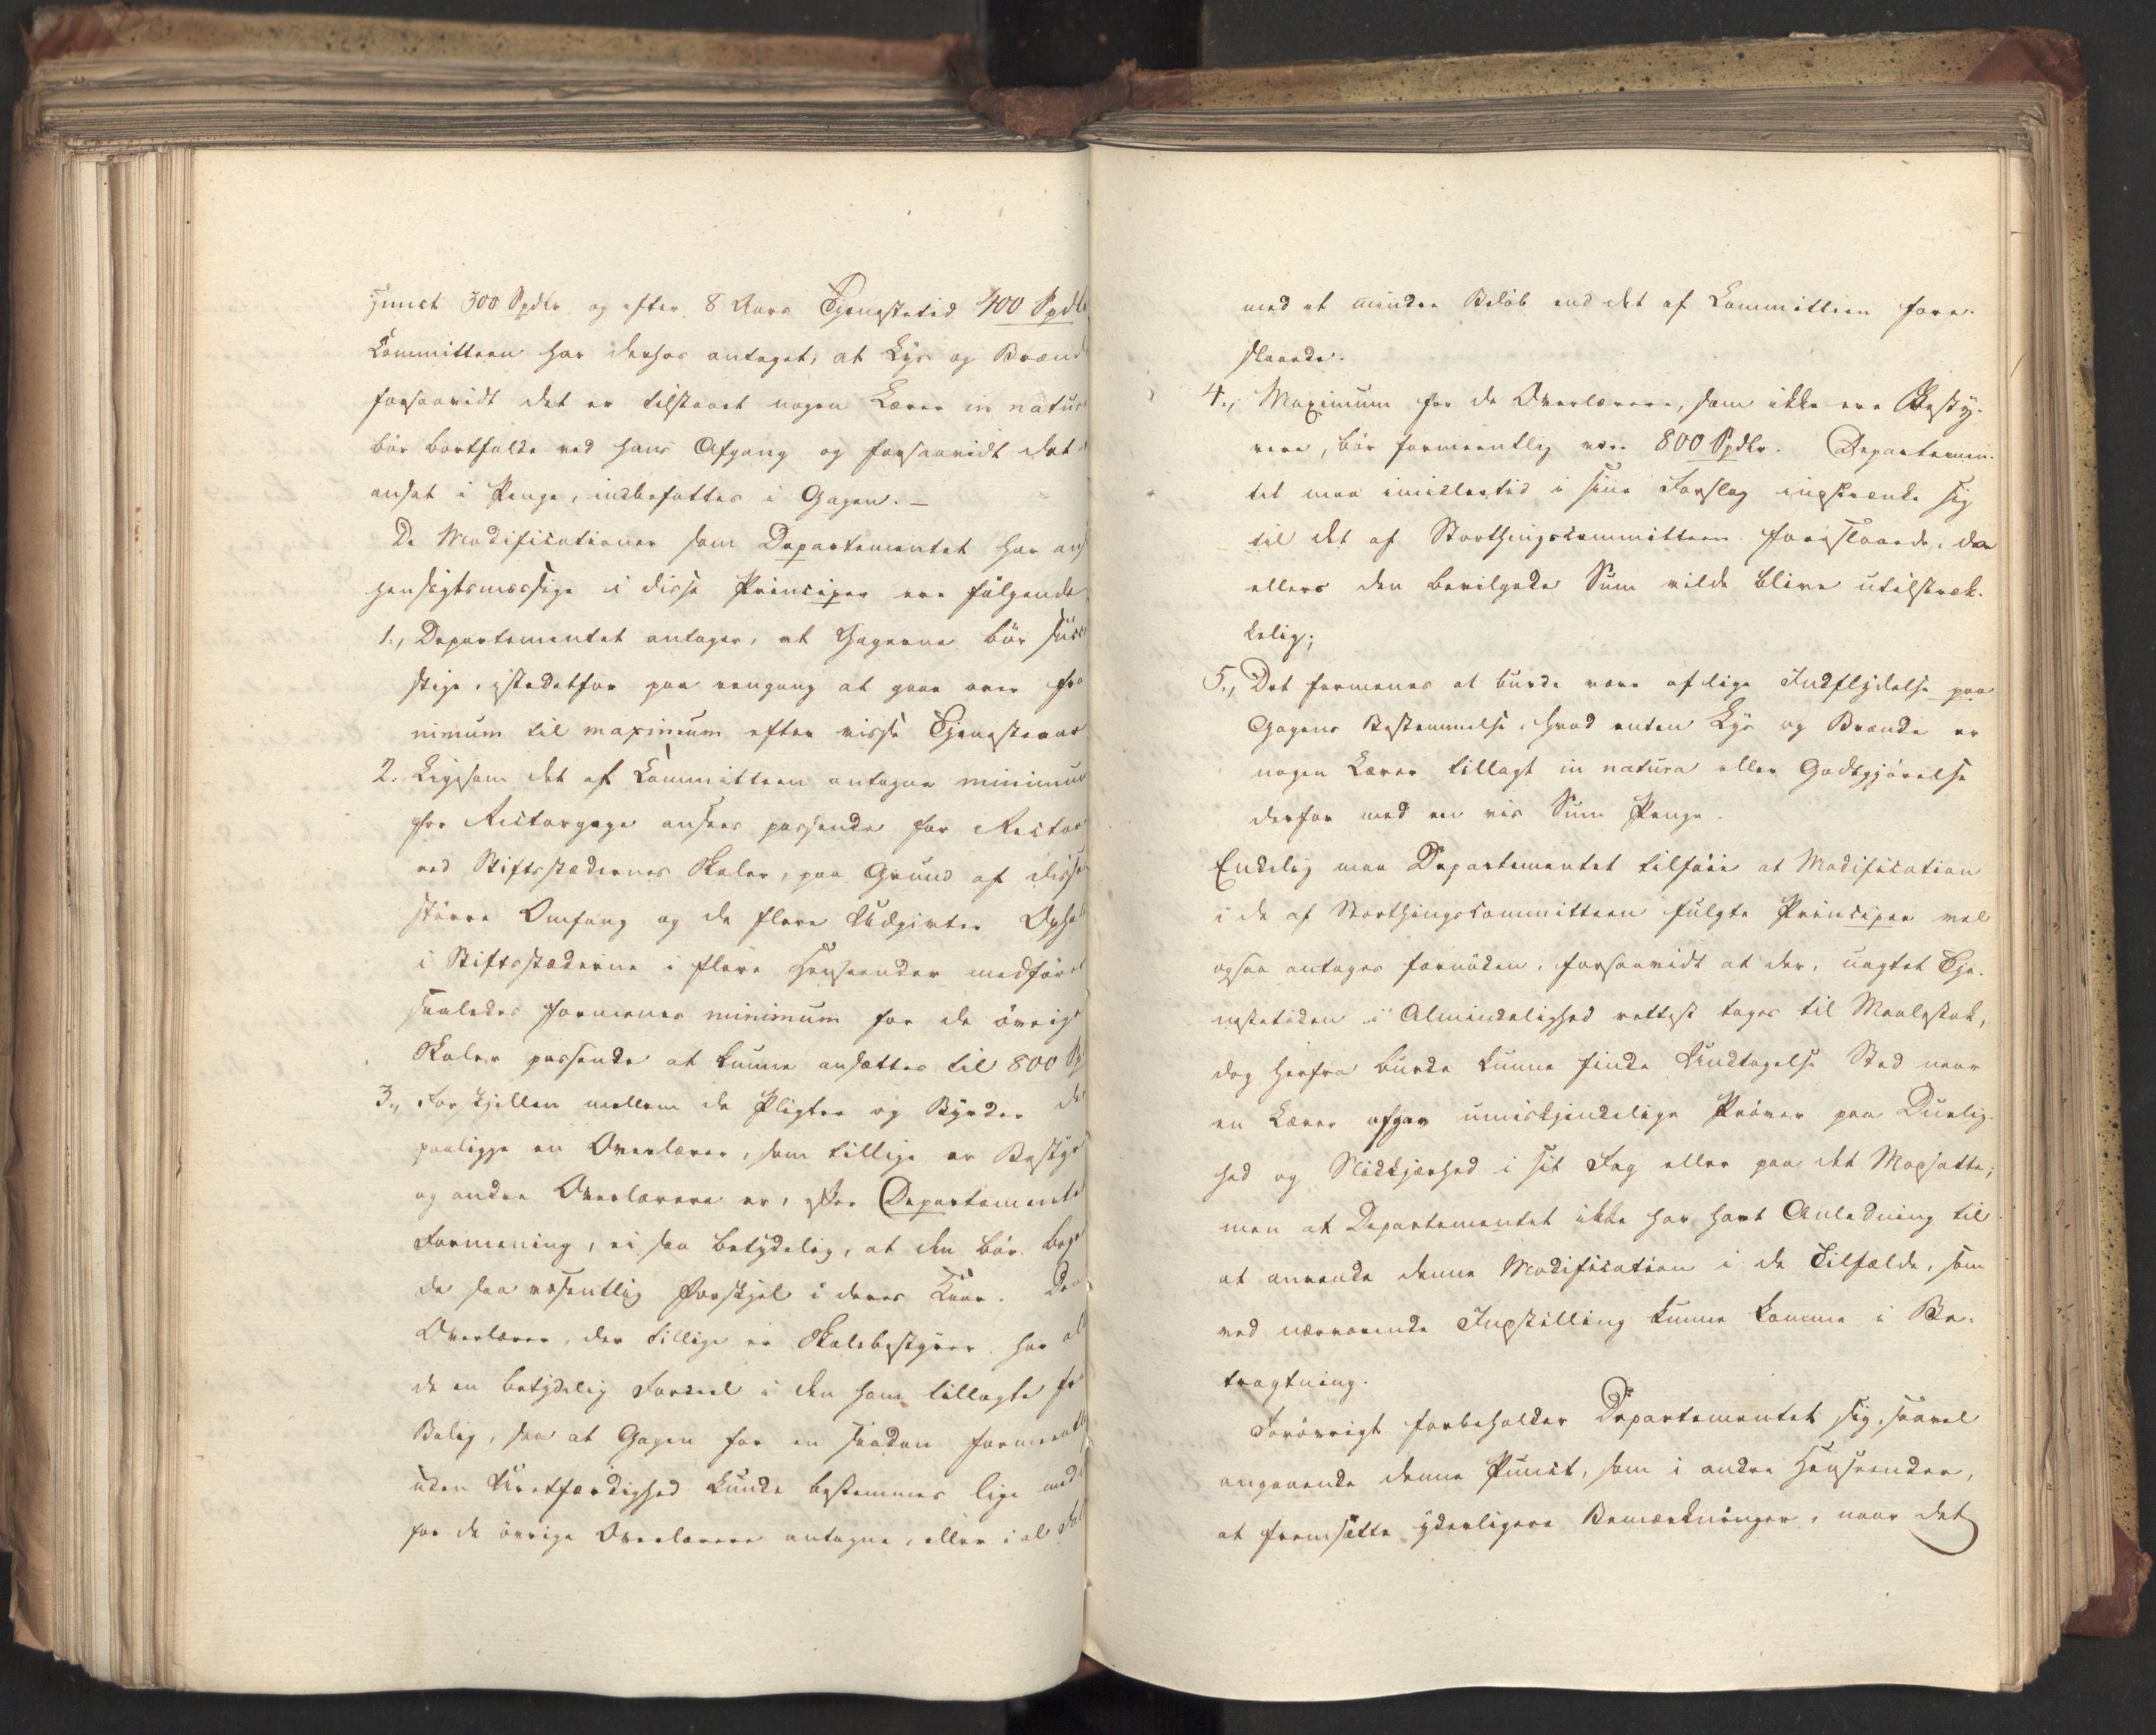 junct 300 Spdlr og efter 8 Aars Tjenestetid 400 Spdl
Committeen har derhos antaget, at Lys og Brænd
forsaavidt det er tilstaaet nogen Lærer in natur
bör bortfalde ved hans Afgang og forsaavidt det
ansat i Penge, indbefattes i Gagen. –
De Modificationer som Departementet har an
hensigtsmæssige i disse Principer ere fölgende
1., Departementet antager, at Gagerne bör suc
stige, istedetfor paa eengang at gaae over fra
nimum til maximum efter visse Tjenesteaar
2. Ligesom det af Committeen antagne minimum
for Rectorgage ansees passende for Rector
ved Stiftsstædernes Skoler, paa Grund af disse
större Omfang og de flere Udgivter Opho
i Stiftsstæderne i flere Henseender medförer
saaledes formenes minimum for de övrige
Skoler passende at kunne ansættes til 800 Sp
3., Forskjellen mellem de Pligter og Byrder de
paaligge en Overlærer, som tillige er Bestyr
og andre Overlærere er, efter Departementet
Formening, ei saa betydelig, at den bör beg
de saa væsentlig Forskjel i deres Kaar. Den
Overlærer, der tillige er Skolebestyrer har al
de en betydelig Fordeel i den ham tillagte fr
Bolig, saa at Gagen for en saadan formeentl
uden Uretfærdighed kunde bestemmes lige med
for de övrige Overlærere antagne, eller i al Fal
med et mindre Belöb end det af Committeen fore-
slaaede.
4., Maximum for de Overlærere, som ikke ere Besty-
rere, bör formeentlig være 800 Spdlr. Departemen-
tet maa imidlertid i sine Forslag indskrænke sig
til det af Storthingscommitteen foreslaaede, da
ellers den bevilgede Sum vilde blive utilstræk-
kelig;
5., Det formenes at burde være af lige Indflydelse paa
Gagens Bestemmelse, hvad enten Lys og Brænde er
nogen Lærer tillagt in natura eller Godtgjörelse
derfor med en vis Sum Penge.
Endelig maa Departementet tilföie at Modification
i de af Storthingscommitteen fulgte Principer vel
ogsaa antages fornöden, forsaavidt at der, uagtet Tje-
nestetiden i Almindelighed rettest tages til Maalestok,
dog herfra burde kunne finde Undtagelse Sted naar
en Lærer afgav umiskjendelige Pröver paa Duelig-
hed og Nidkjærhed i sit Fag eller paa det Modsatte;
men at Departementet ikke har havt Anledning til
at anvende denne Modification i de Tilfælde, som
ved nærværende Indstilling kunne komme i Be-
tragtning.
Foröwrigt forbeholder Departementet sig, saavel
angaaende denne Punct, som i andre Henseender,
at fremsætte yderligere Bemærkninger, naar det